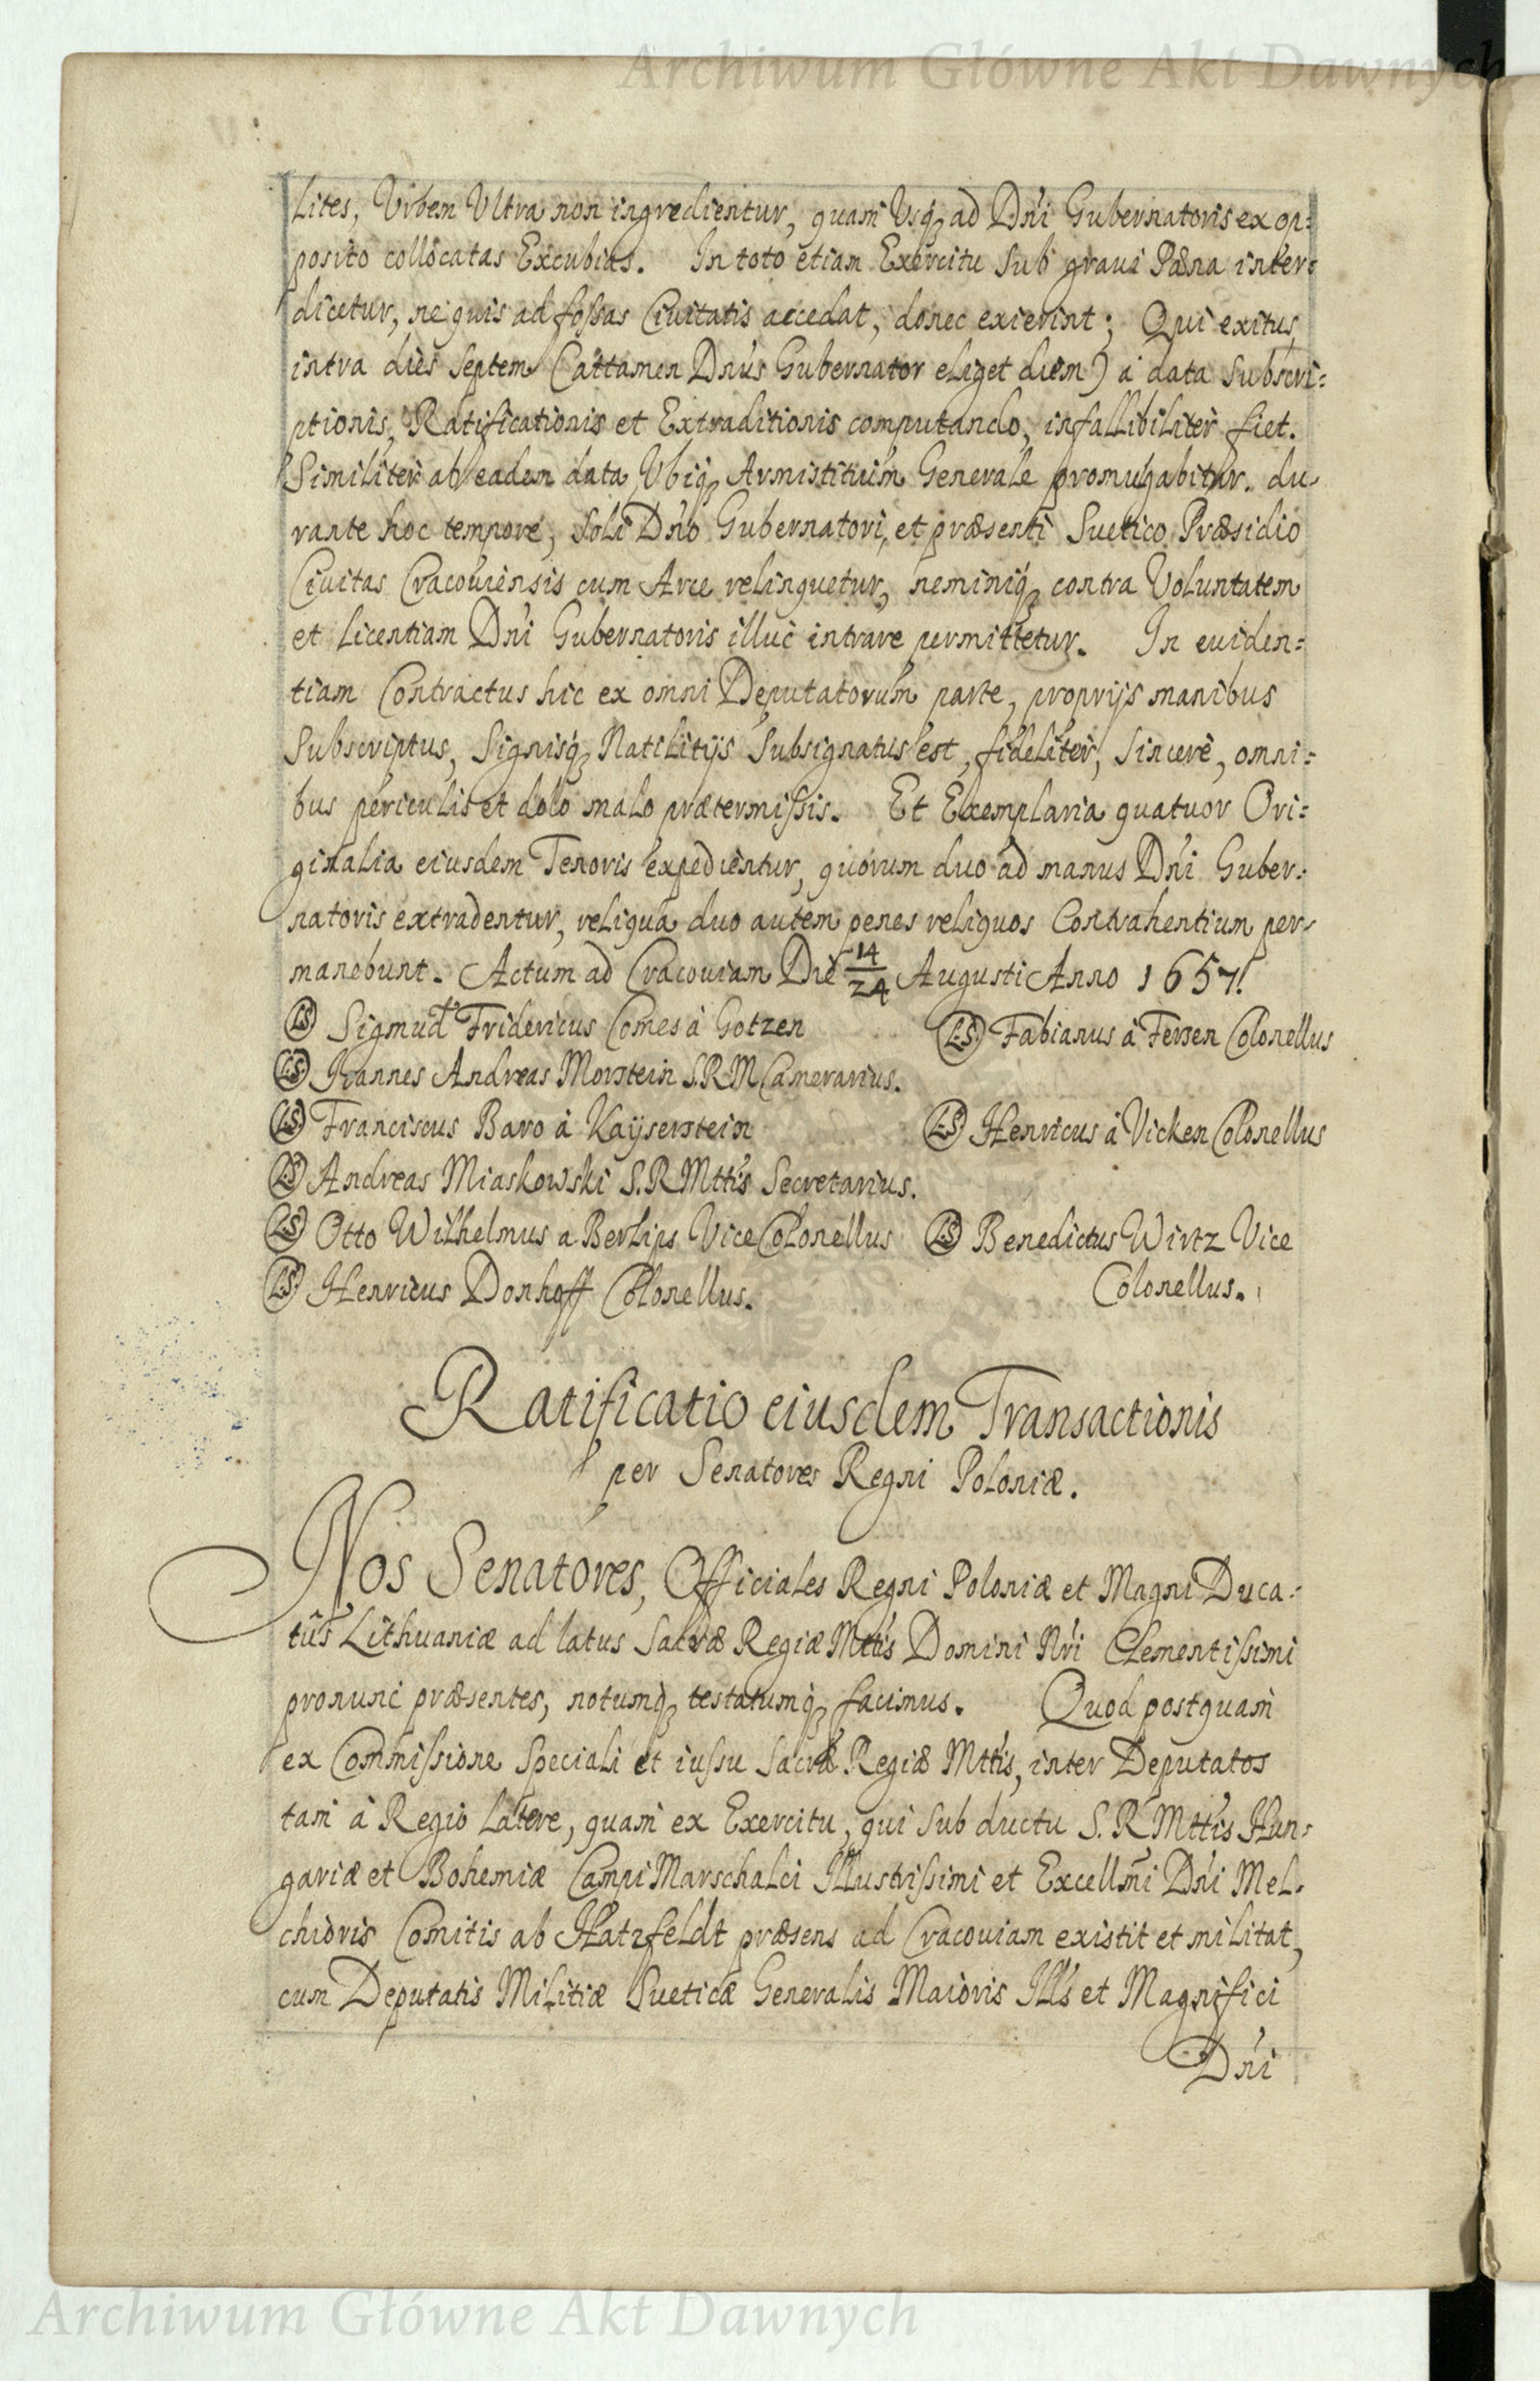 Archiwum Główne Akt Dawnych
Lites, Urbem Ultra non ingredientur, quam Usq₃ ad Dn̄i Gubernatoris ex op=
posito collocatas Excubias. In toto etiam Exercitu sub graui Pœna inter=
dicetur, ne quis ad fossas Ciuitatis accedat, donec exierint; Qui exitus
intra dies septem (attamen Dnūs Gubernator eliget diem) à data subscri=
ptionis, Ratificationis et Extraditionis computando, infallibiliter fiet.
Similiter ab eadem data Ubiq₃ Armistitium Generale promulgabitur. du-
rante hoc tempore, soli Dn̄o Gubernatori, et præsenti Suetico Præsidio
Ciuitas Cracouiensis cum Arce relinquetur, neminiq₃ contra Voluntatem
et licentiam Dn̄i Gubernatoris illuc intrare permittetur. In euiden=
tiam Contractus hic ex omni Deputatorum parte, proprijs manibus
Subscriptus, Signisq₃ Natilitijs Subsignatus est, fideliter, sincerè, omni=
bus periculis et dolo malo prætermissis. Et Exemplaria quatuor Ori=
ginalia eiusdem Tenoris expedientur, quorum duo ad manus Dn̄i Guber=
natoris extradentur, reliqua duo autem penes reliquos Contrahentium per-
manebunt. Actum ad Cracouiam Die 14/24 Augusti Anno 1657.
(LS) Sigmud̄ Fridericus Comes à Gotzen (L.S.) Fabianus à Fersen Colonellus
(L.S.) Joannes Andreas Morstein S.R.M Camerarius.
(LS) Franciscus Baro à Kayserstein (L.S) Henricus à Vicken Colonellus
(LS) Andreas Miaskowski S.R.Mttis Secretarius.
(L.S) Otto Wilhelmus a Berlips Vice Colonellus (LS) Benedictus Wirtz Vice
(L.S.) Henricus Donhoff Colonellus. Colonellus.
Ratificatio eiusdem Transactionis
per Senatores Regni Poloniæ.
Nos Senatores, Officiales Regni Poloniæ et Magni Duca=
tûs Lithuaniæ ad latus Sacræ Regiæ Mttis Domini Nr̄i Clementissimi
pronunc præsentes, notumq₃ testatumq₃ facimus. Quod postquam
ex Commissione Speciali et iussu Sacræ Regiæ Mttis, inter Deputatos
tam à Regio Latere, quam ex Exercitu, qui sub ductu S. R Mttis Hun-
gariæ et Bohemiæ Campi Marschalci Illustrissimi et Excellm̄i Dn̄i Mel-
chioris Comitis ab Hatzfeldt præsens ad Cracouiam existit et militat,
cum Deputatis Militiæ Sueticæ Generalis Maioris Ills et Magnifici
Dn̄i
Archiwum Główne Akt Dawnych